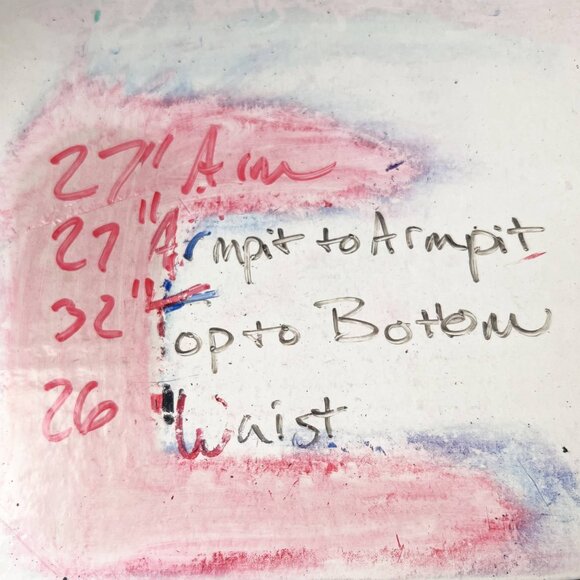 27" Arm
27" Armpit to Armpit
32" Top to Bottom
26" Waist